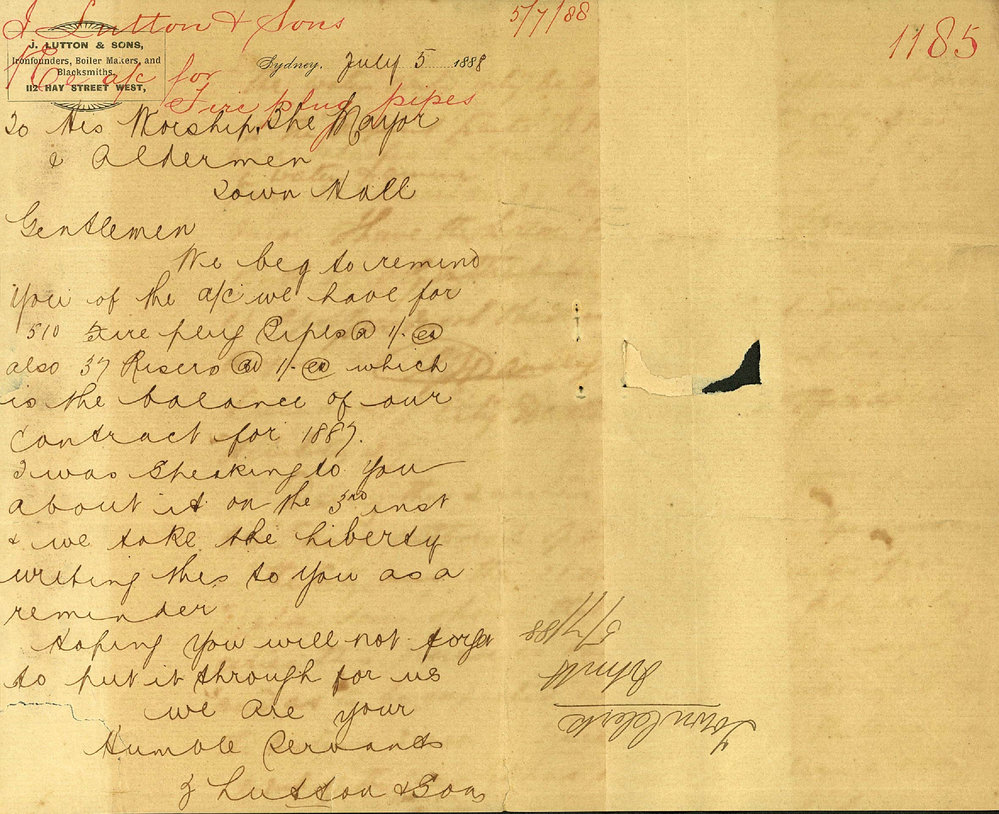 J Lutton & Sons
5/7/88
1185
J. LUTTON & SONS,
Ironfounders, Boiler Makers, and
Blacksmiths,
112 HAY STREET WEST,
Re a/c for
Fire plug pipes
Sydney, July 5 1888
To His Worship, The Mayor
& Aldermen
Town Hall
Gentlemen
We beg to remind
You of the a/c we have for
510 Fire plug Pipes @ 1/- ea
also 37 Risers @ 1/- ea which
is the balance of our
Contract for 1887.
I was Speaking to You
about it on the 3rd inst
& we take the liberty
writing this to You as a
reminder
Hoping You will not forget
to put it through for us
we are your
Humble Servants
J Lutton & Sons
Town Clerk
5/7/88